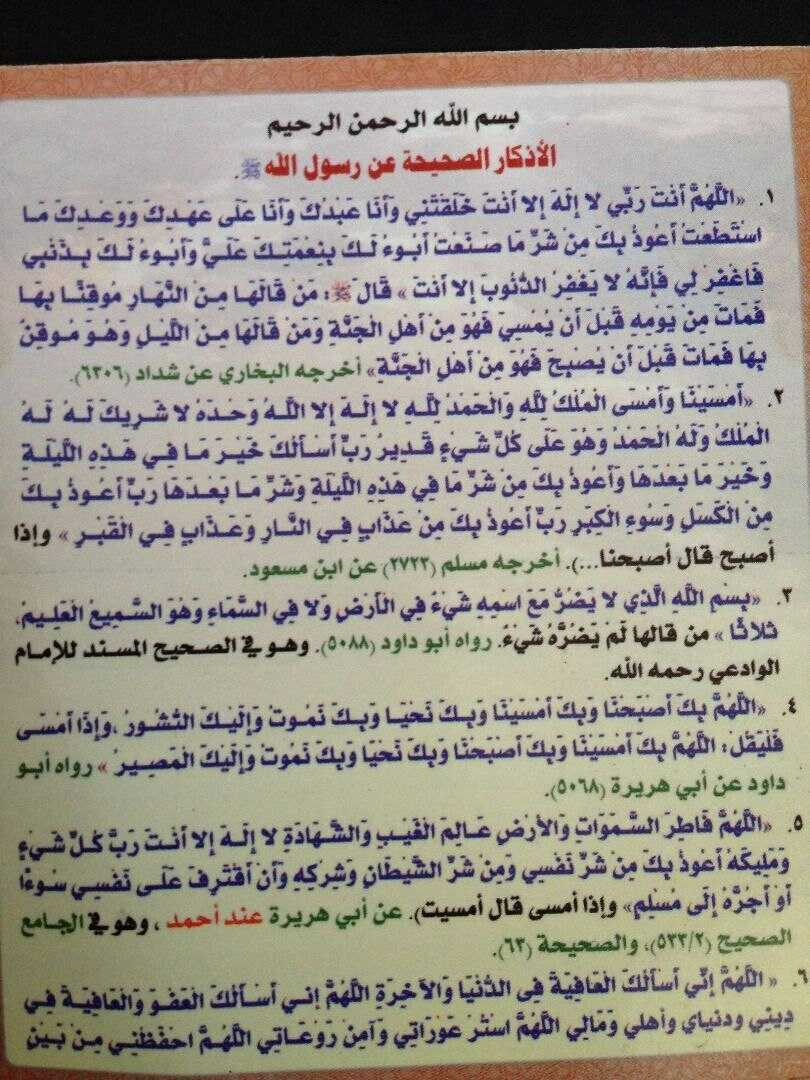 بسم الله الرحمن الرحيم
الأذكار الصحيحة عن رسول الله ﷺ.
١. «اللَّهُمَّ أَنْتَ رَبِّي لا إِلَهَ إلا أَنْتَ خَلَقْتَنِي وَأَنَا عَبْدُكَ وَأَنَا عَلَى عَهْدِكَ وَوَعْدِكَ مَا
اسْتَطَعْتُ أَعُوذُ بِكَ مِنْ شَرِّ مَا صَنَعْتُ أَبُوءُ لَكَ بِنِعْمَتِكَ عَلَيَّ وَأَبُوءُ لَكَ بِذَنْبِي
فَاغْفِرْ لِي فَإِنَّهُ لا يَغْفِرُ الذُّنُوبَ إلا أَنْتَ» قَالَ ﷺ: مَن قَالَهَا مِنَ النَّهَارِ مُوقِنًا بِهَا
فَمَاتَ مِن يَوْمِهِ قَبْلَ أَن يُمْسِيَ فَهُوَ مِنْ أَهْلِ الْجَنَّةِ وَمَنْ قَالَهَا مِنَ اللَّيْلِ وَهُوَ مُوقِنٌ
بِهَا فَمَاتَ قَبْلَ أَن يُصْبِحَ فَهُوَ مِنْ أَهْلِ الْجَنَّةِ» أخرجه البخاري عن شداد (٦٣٠٦).
٢. «أَمْسَيْنَا وَأَمْسَى الْمُلْكُ لِلَّهِ وَالْحَمْدُ لِلَّهِ لا إِلَهَ إلا اللَّهُ وَحْدَهُ لا شَرِيكَ لَهُ لَهُ
الْمُلْكُ وَلَهُ الْحَمْدُ وَهُوَ عَلَى كُلِّ شَيْءٍ قَدِيرٌ رَبِّ أَسْأَلُكَ خَيْرَ مَا فِي هَذِهِ اللَّيْلَةِ
وَخَيْرَ مَا بَعْدَهَا وَأَعُوذُ بِكَ مِنْ شَرِّ مَا فِي هَذِهِ اللَّيْلَةِ وَشَرِّ مَا بَعْدَهَا رَبِّ أَعُوذُ بِكَ
مِنْ الْكَسَلِ وَسُوءِ الْكِبَرِ رَبِّ أَعُوذُ بِكَ مِنْ عَذَابٍ فِي النَّارِ وَعَذَابٍ فِي الْقَبْرِ» وإذا
أصبح قال أصبحنا...). أخرجه مسلم (٢٧٢٣) عن ابن مسعود.
٣. «بِسْمِ اللَّهِ الَّذِي لا يَضُرُّ مَعَ اسْمِهِ شَيْءٌ فِي الأَرْضِ وَلا فِي السَّمَاءِ وَهُوَ السَّمِيعُ الْعَلِيمُ،
ثَلاثًا» من قالها لَمْ يَضُرَّهُ شَيْءٌ. رواه أبو داود (٥٠٨٨). وهو في الصحيح المسند للإمام
الوادعي رحمه الله.
٤. «اللَّهُمَّ بِكَ أَصْبَحْنَا وَبِكَ أَمْسَيْنَا وَبِكَ نَحْيَا وَبِكَ نَمُوتُ وَإِلَيْكَ النُّشُورُ ،وَإِذَا أَمْسَى
فَلْيَقُلْ: اللَّهُمَّ بِكَ أَمْسَيْنَا وَبِكَ أَصْبَحْنَا وَبِكَ نَحْيَا وَبِكَ نَمُوتُ وَإِلَيْكَ الْمَصِيرُ» رواه أبو
داود عن أبي هريرة (٥٠٦٨).
٥. «اللَّهُمَّ فَاطِرَ السَّمَوَاتِ وَالأَرْضِ عَالِمَ الْغَيْبِ وَالشَّهَادَةِ لا إِلَهَ إلا أَنْتَ رَبَّ كُلِّ شَيْءٍ
وَمَلِيكَهُ أَعُوذُ بِكَ مِنْ شَرِّ نَفْسِي وَمِنْ شَرِّ الشَّيْطَانِ وَشِرْكِهِ وَأَنْ أَقْتَرِفَ عَلَى نَفْسِي سُوءًا
أَوْ أَجُرَّهُ إِلَى مُسْلِمٍ» وإذا أمسى قال أمسيت). عن أبي هريرة عند أحمد ، وهو في الجامع
الصحيح (٥٣٣/٢)، والصحيحة (٦٣).
٦. « اللَّهُمَّ إِنِّي أَسْأَلُكَ الْعَافِيَةَ فِي الدُّنْيَا وَالآخِرَةِ اللَّهُمَّ إني أَسْأَلُكَ الْعَفْوَ وَالْعَافِيَةَ فِي
دِينِي ودنياي وأهلي وَمَالِي اللَّهُمَّ اسْتُرْ عَوْرَاتِي وَآمِنْ رَوْعَاتِي اللَّهُمَّ احْفَظْنِي مِنْ بَيْنِ